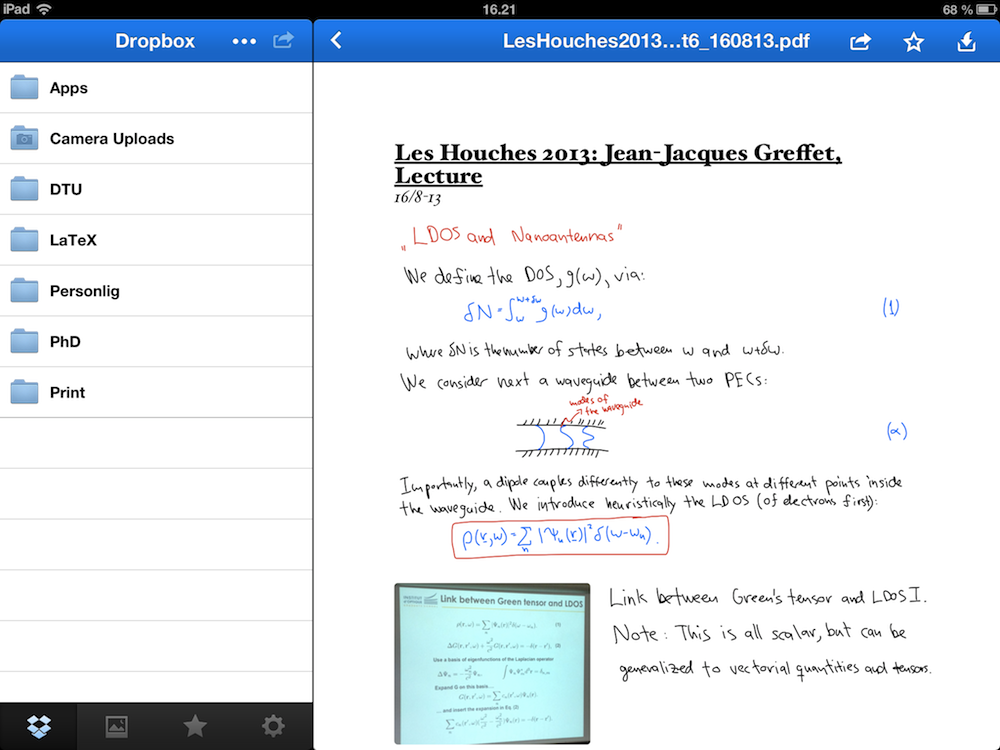 iPad 16.21 68 %
Dropbox
LesHouches2013...t6_160813.pdf
Apps
Camera Uploads
DTU
LaTeX
Personlig
PhD
Print
Les Houches 2013: Jean-Jacques Greffet,
Lecture
16/8-13
„LDOS and Nanoantennas"
We define the DOS, g(ω), via:
δN = ∫_ω^{ω+δω} g(ω)dω, (1)
where δN is the number of states between ω and ω+δω.
We consider next a waveguide between two PECs:
modes of
the waveguide
(α)
Importantly, a dipole couples differently to these modes at different points inside
the waveguide. We introduce heuristically the LDOS (of electrons first):
ρ(r,ω) = Σ_n |Ψ_n(r)|² δ(ω-ω_n).
Link between Green tensor and LDOS
Use a basis of eigenfunctions of the Laplacian operator
Expand G on this basis ...
... and insert the expansion in Eq. (2)
Link between Green's tensor and LDOS I.
Note: This is all scalar, but can be
generalized to vectorial quantities and tensors.